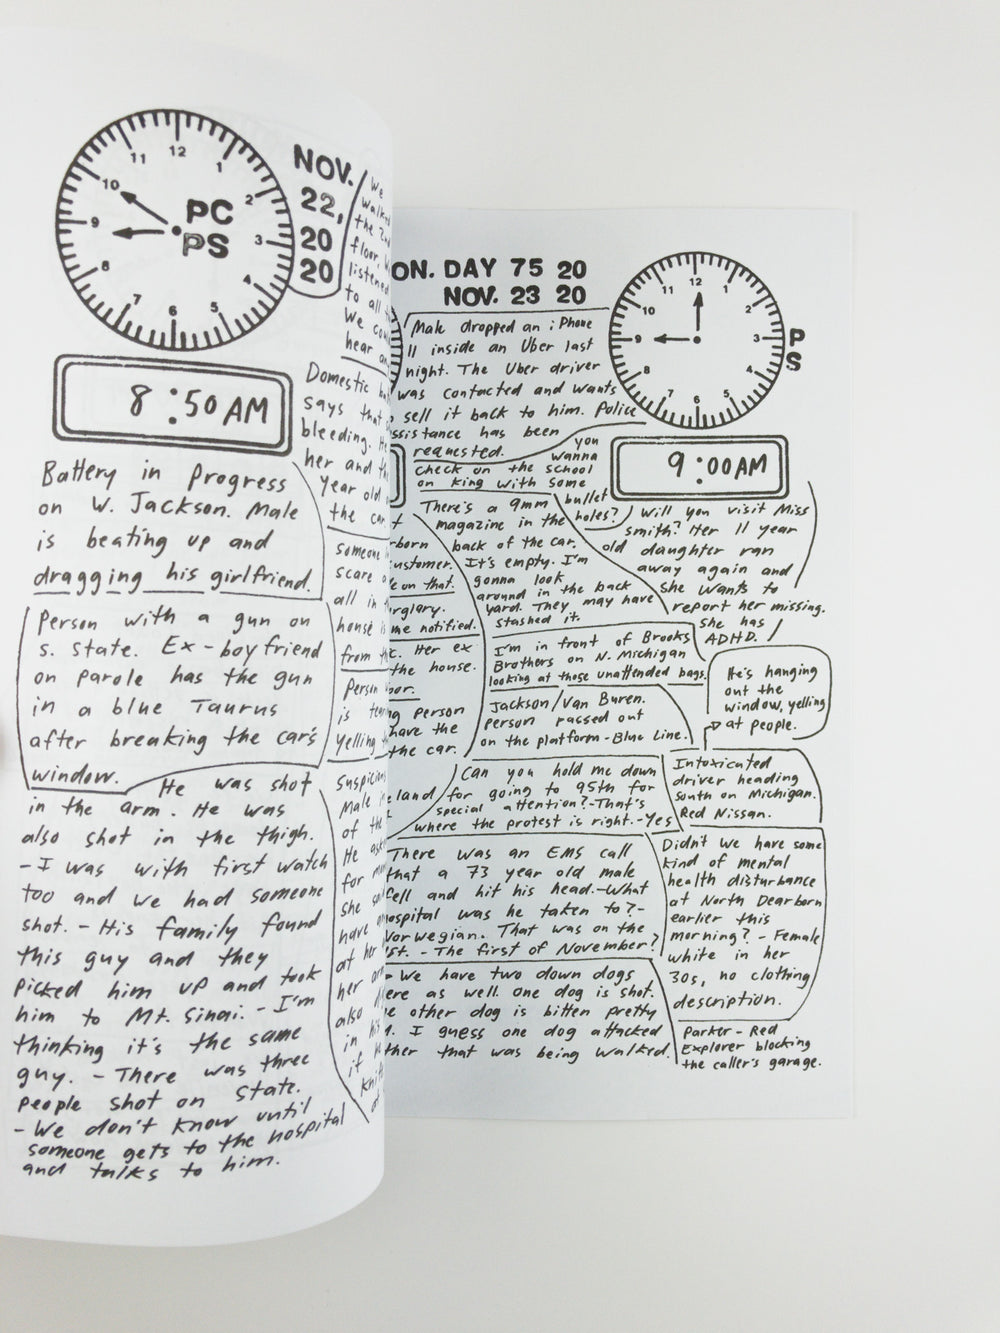 12
1
2
3
4
5
6
7
8
9
10
11
PC
PS
NOV.
22,
20
20
8:50 AM
Battery in Progress
on W. Jackson. Male
is beating up and
dragging his girlfriend.
Person with a gun on
S. State. Ex-boyfriend
on parole has the gun
in a blue Taurus
after breaking the car's
window.
He was shot
in the arm. He was
also shot in the thigh.
- I was with first watch
too and we had someone
shot. - His family found
this guy and they
picked him up and took
him to Mt. Sinai. - I'm
thinking it's the same
guy. - There was three
people shot on State.
- We don't know until
someone gets to the hospital
and talks to him.
We
the
floor,
listened
to all
We
hear
Domestic
says that
bleeding.
her and
year old
the car.
someone
scare
all in
house is
from
Person
is
Yelling
Suspicious
Male
of the
He
for
she
have
at her
her
also
in his
if
DAY 75 20
NOV. 23 20
Male dropped an iPhone
11 inside an Uber last
night. The Uber driver
was contacted and wants
sell it back to him. Police
has been
requested.
you
wanna
check on the school
on King with some
bullet
holes?
There's a 9mm
magazine in the
back of the car.
It's empty. I'm
gonna look
around in the back
yard. They may have
stashed it.
on that.
me notified.
Her ex
the house.
Person
have the
the car.
I'm in front of Brooks
Brothers on N. Michigan
looking at those unattended bags.
Jackson/Van Buren.
Person passed out
on the platform - Blue Line.
Can you hold me down
for going to 95th for
special attention? - That's
where the protest is right. - Yes
There was an EMS call
that a 73 year old male
fell and hit his head. - What
hospital was he taken to? -
Norwegian. That was on the
1st. - The first of November?
- We have two down dogs
as well. One dog is shot.
other dog is bitten pretty
I guess one dog attacked
that was being walked.
12
1
2
3
4
5
6
7
8
9
10
11
P
S
9:00 AM
Will you visit Miss
Smith? Her 11 year
old daughter ran
away again and
she wants to
report her missing.
She has
ADHD.
He's hanging
out the
window, yelling
at people.
Intoxicated
driver heading
south on Michigan.
Red Nissan.
Didn't we have some
kind of mental
health disturbance
at North Dearborn
earlier this
morning? - Female
white in her
30s, no clothing
description.
Parker - Red
Explorer blocking
the caller's garage.